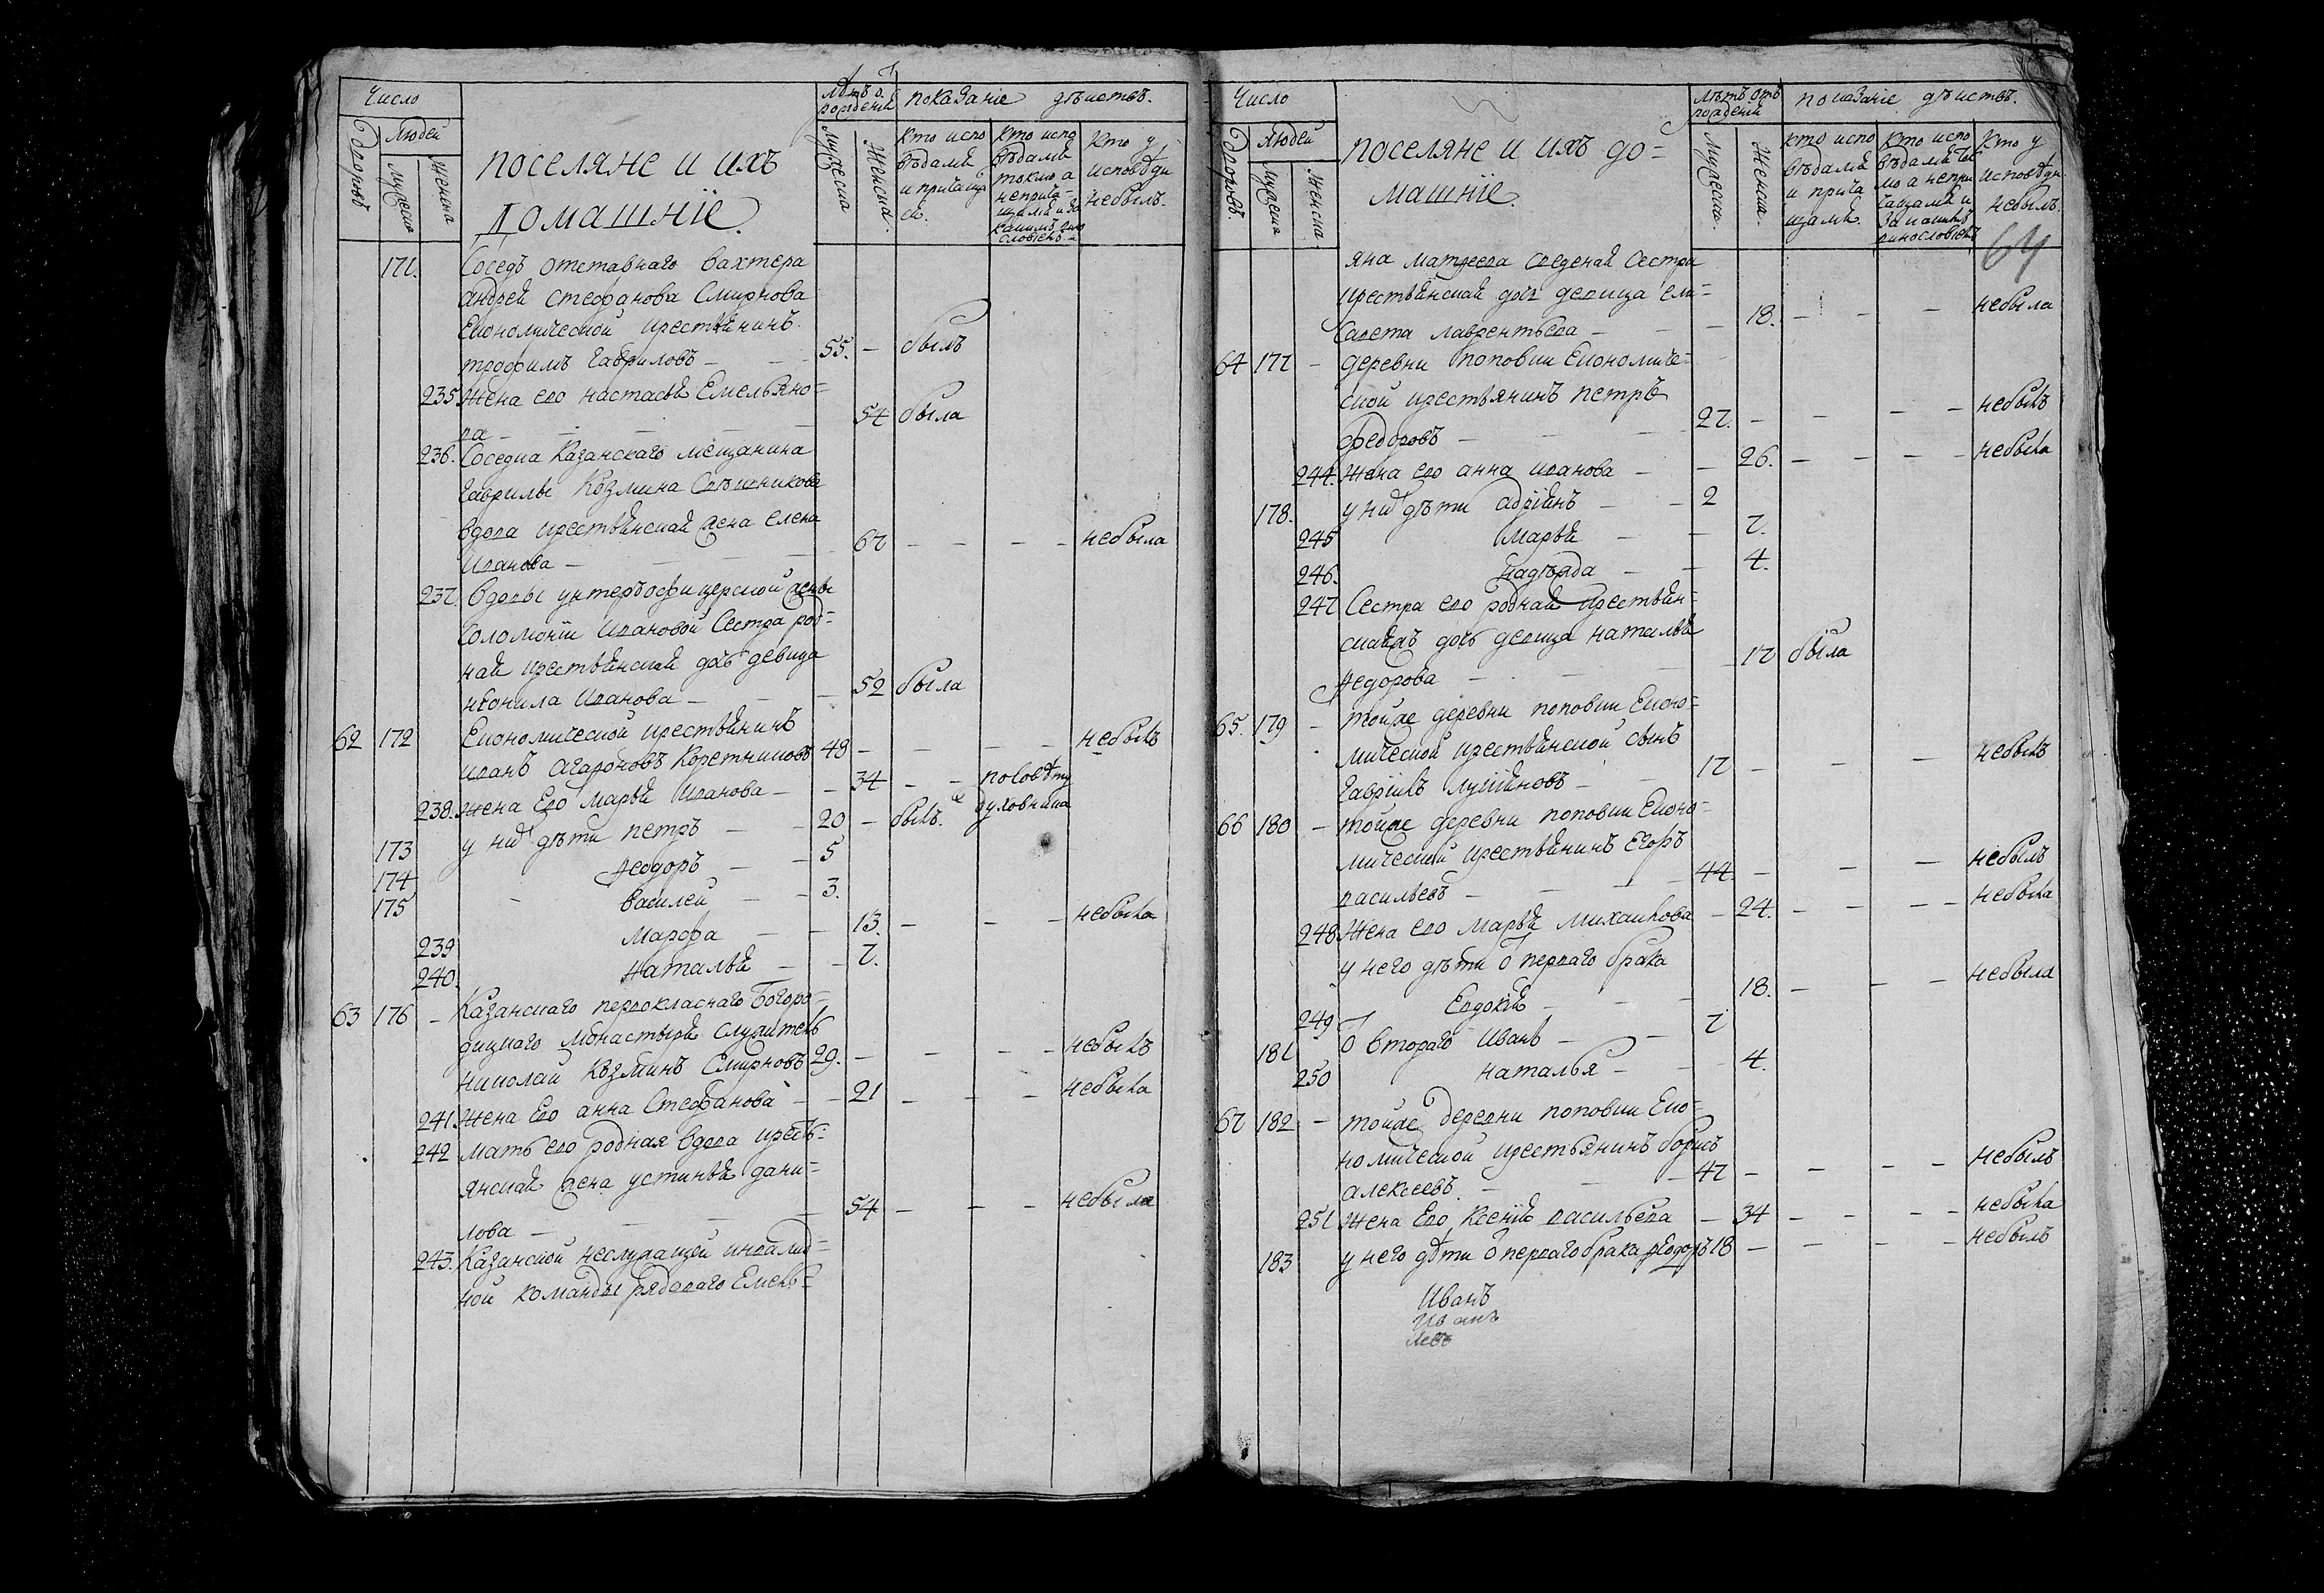 Число
Дворовъ
Людей
Мужеска
Женска
поселяне и ихъ
домашніе.
Лѣтъ от
рожденія
Мужеска
Женска.
показаніе дѣиствъ.
кто испо
вѣдался
и причаща
ся.
кто испо
вѣдался
токмо а
неприча-
щался и за
какимъ вино
словіемъ
кто у
исповѣди
небылъ.
171. Сосѣдъ отставнаго вахтера
андрея стефанова Смирнова
Економической крестьянинъ
трофимъ Гавриловъ — 55. — былъ
235 Жена его настасья Емельяно=
ва — 54 была
236. Соседка Казанскаго мещанина
Гаврилы Козмина
вдова крестьянская жена елена
Иванова — 67 — — — — небыла
237. Вдовы унтеръофицерской жены
Соломоніи Ивановой Сестра род=
ная крестьянская дочь девица
неонила Иванова — 52 была
62 172 Економической крестьянинъ
иванъ агафоновъ Коретниковъ 48 — — — — небылъ
238. Жена Его Марья Иванова — — 34 — — посовѣту
духовника
173 у них дѣти петръ — — 20 — былъ.
174 Феодоръ — — 5
175 Василей — — 3.
239 Марфа — — 13. — — — небыла
240. Наталья — — 7.
63 176 — Казанскаго первокласнаго Богоро=
дицкаго Монастыря служитель
николай Козминъ Смирновъ 29. — — — — небылъ
241. Жена Его анна Стефанова — — 21 — — — небыла
242 мать его родная вдова кресть=
янская жена устинья дани=
лова — — — — 54 — — — небыла
243. Казанской неслужащей инвалид=
ной команды рядоваго Емель=
Число
Дворовъ.
Людей
Мужеска
Женска
поселяне и ихъ до=
машніе.
лѣтъ отъ
рожденія
Мужеска.
Женска.
показаніе дѣиствъ.
кто испо
вѣдался
и прича
щался.
кто испо
вѣдался ток
мо а непри
чащался и
за какимъ
винословіемъ
кто у
исповѣди
небылъ.
64
яна матвеева сведеная сестра
крестьянская дочь девица ели=
савета лаврентьева — — 18. — — — небыла
64 177 — деревни поповки Економиче=
ской крестьянинъ петръ
Федоровъ — — — 27. — — — — небылъ
244. Жена его анна иванова — — 26. — — — — небыла
178. у них дѣти адріянъ — — 2
245 Марья — — 7.
246. Надежда — — 4.
247 Сестра его родная крестьян=
скаяъ дочь девица наталья
Федорова — — — 17 была
65. 179 — тойже деревни поповки Еконо=
мической крестьянской сынъ
Гавріилъ — — 17 — — — небылъ
66 180 — тойже деревни поповки Еконо=
мической крестьянинъ Егоръ
васильевъ — — — 44. — — — небылъ
248 Жена его Марья Михаилова — 24. — — — — небыла
у него дѣти о перваго брака
249 Евдокія — — — 18. — — — небыла
181 о втораго Иванъ — — 7
250 наталья — — 4.
67 182 — тойже деревни поповки Еко=
номической крестьянинъ борисъ
алексеевъ. — — — 47 — — — — небылъ
251 Жена Его Ксенія васильева — 34 — — — — небыла
183 у него дѣти о перваго брака Феодоръ 18 — — — — небылъ
Иванъ
Иванъ